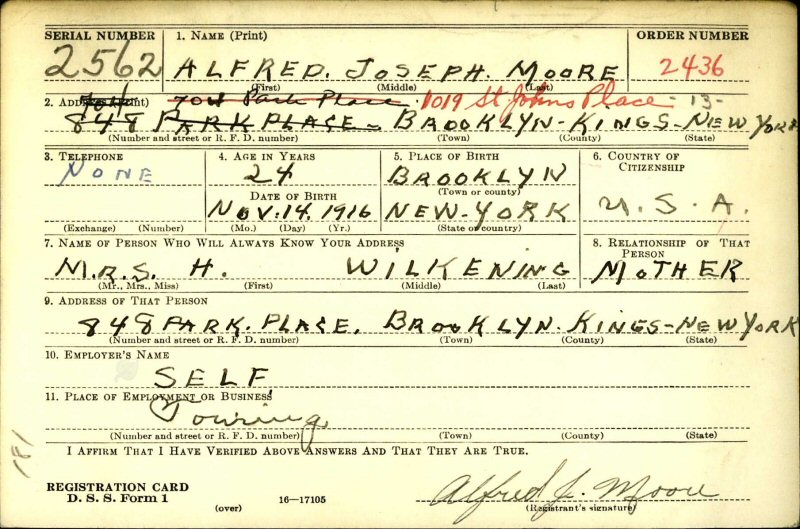 SERIAL NUMBER 1. NAME (Print) ORDER NUMBER
2562 ALFRED. JOSEPH. MOORE 2436
(First) (Middle) (Last)
2. ADDRESS (Print) 704 Park Place 1019 St Johns Place - 13 -
848 PARK PLACE - BROOKLYN - KINGS - NEW YORK
(Number and street or R. F. D. number) (Town) (County) (State)
3. TELEPHONE 4. AGE IN YEARS 5. PLACE OF BIRTH 6. COUNTRY OF CITIZENSHIP
NONE 24 BROOKLYN
(Town or county)
DATE OF BIRTH
NOV. 14. 1916 NEW-YORK U. S. A.
(Exchange) (Number) (Mo.) (Day) (Yr.) (State or country)
7. NAME OF PERSON WHO WILL ALWAYS KNOW YOUR ADDRESS 8. RELATIONSHIP OF THAT PERSON
M.R.S. H. WILKENING MOTHER
(Mr., Mrs., Miss) (First) (Middle) (Last)
9. ADDRESS OF THAT PERSON
848 PARK. PLACE. BROOKLYN. KINGS - NEW YORK
(Number and street or R. F. D. number) (Town) (County) (State)
10. EMPLOYER'S NAME
SELF
11. PLACE OF EMPLOYMENT OR BUSINESS
Touring
(Number and street or R. F. D. number) (Town) (County) (State)
I AFFIRM THAT I HAVE VERIFIED ABOVE ANSWERS AND THAT THEY ARE TRUE.
181
REGISTRATION CARD
D. S. S. Form 1 (over) 16—17105 Alfred J. Moore
(Registrant's signature)